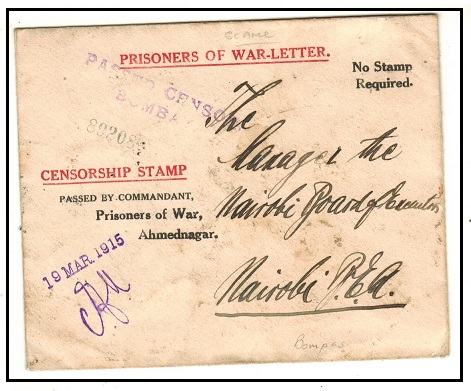 SCARCE
PRISONERS OF WAR-LETTER.
No Stamp
Required.
PASSED CENSO
BOMBA
The
Manager the
Nairobi Board of
Nairobi B.E.A.
CENSORSHIP STAMP
PASSED BY COMMANDANT,
Prisoners of War,
Ahmednagar.
19 MAR. 1915
Bompas